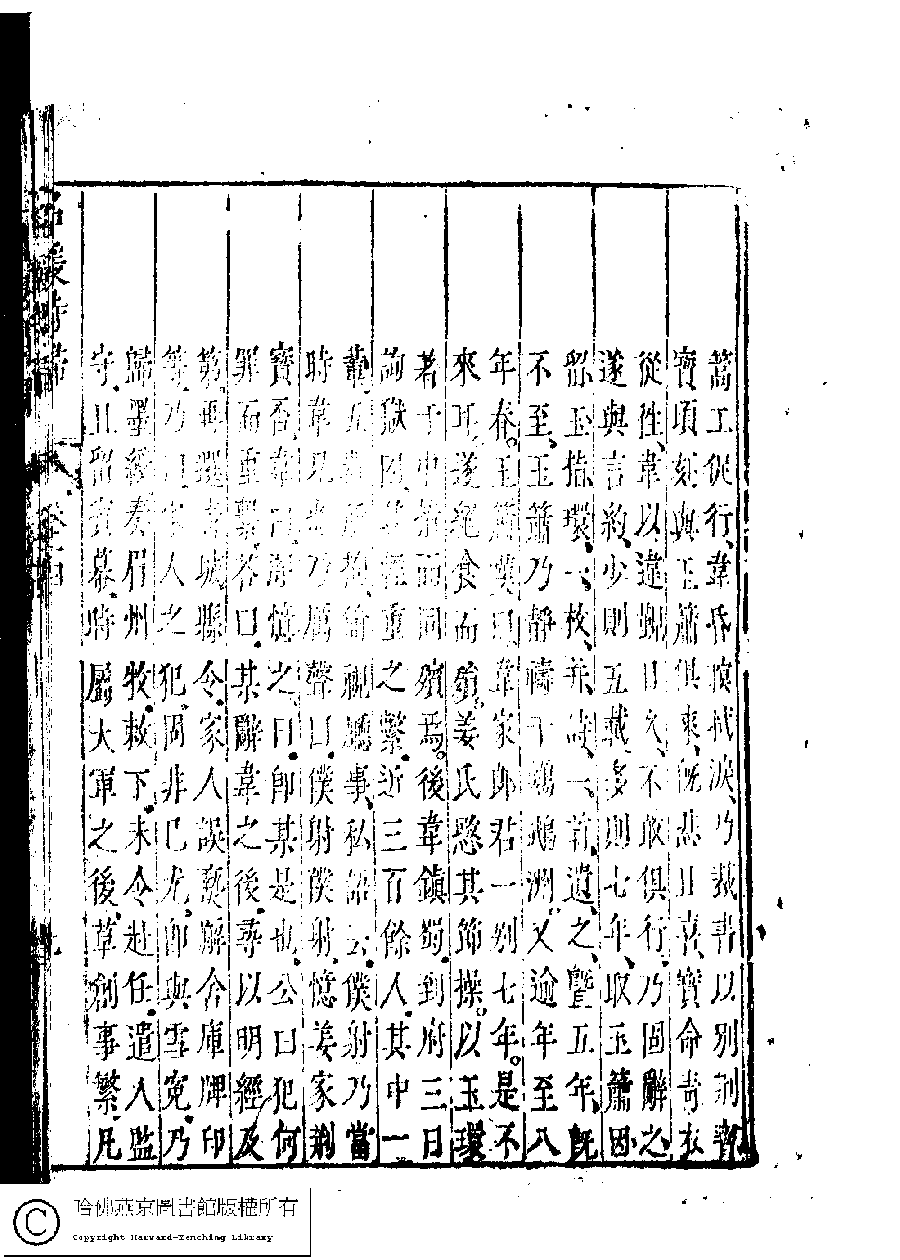 篙工促行韋昏瞑拭淚乃裁書以別荆寶
寶頃刻與玉簫俱來、既悲且喜、寶命青衣
從往、韋以違覲日久、不敢俱行、乃固辭之
遂與言約、少則五載、多則七年、取玉簫因
留玉指環一枚、并詩一首遺之、曁五年、既
不至、玉簫乃靜禱于鸚鵡洲、又逾年至八
年春。玉簫嘆曰、韋家郎君一別七年。是不
來耳、遂絕食而殞、姜氏愍其節操、以玉環
著于中指而同殯焉。後韋鎮蜀、到府三日
詢獄囚、其輕重之繫、近三百餘人、其中一
輩、五器所拘、偷視廳事、私語云、僕射乃當
時韋兄也乃厲聲曰、僕射僕射、憶姜家荆
寶否、韋曰、深憶之、曰、卽某是也、公曰犯何
罪而重繫、答曰、某辭韋之後、尋以明經及
第、再選青城縣令、家人誤爇廨舍庫牌印
等、乃曰家人之犯、固非已尤、卽與雪寃、乃
歸墨綬、奏眉州牧、敕下、未令赴任、遣人監
守、且留賓幕、時屬大軍之後、草創事繁、凡
名媛詩歸 卷之四 九
哈佛燕京圖書館版權所有
Copyright Harvard-Yenching Library